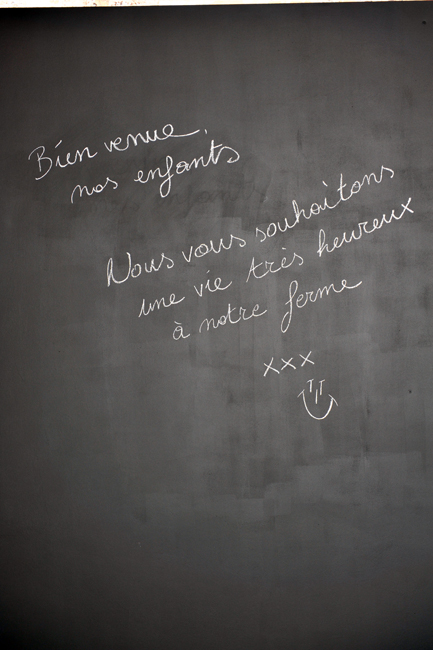 Bien venue,
nos enfants
Nous vous souhaitons
une vie très heureux
à notre ferme
xxx